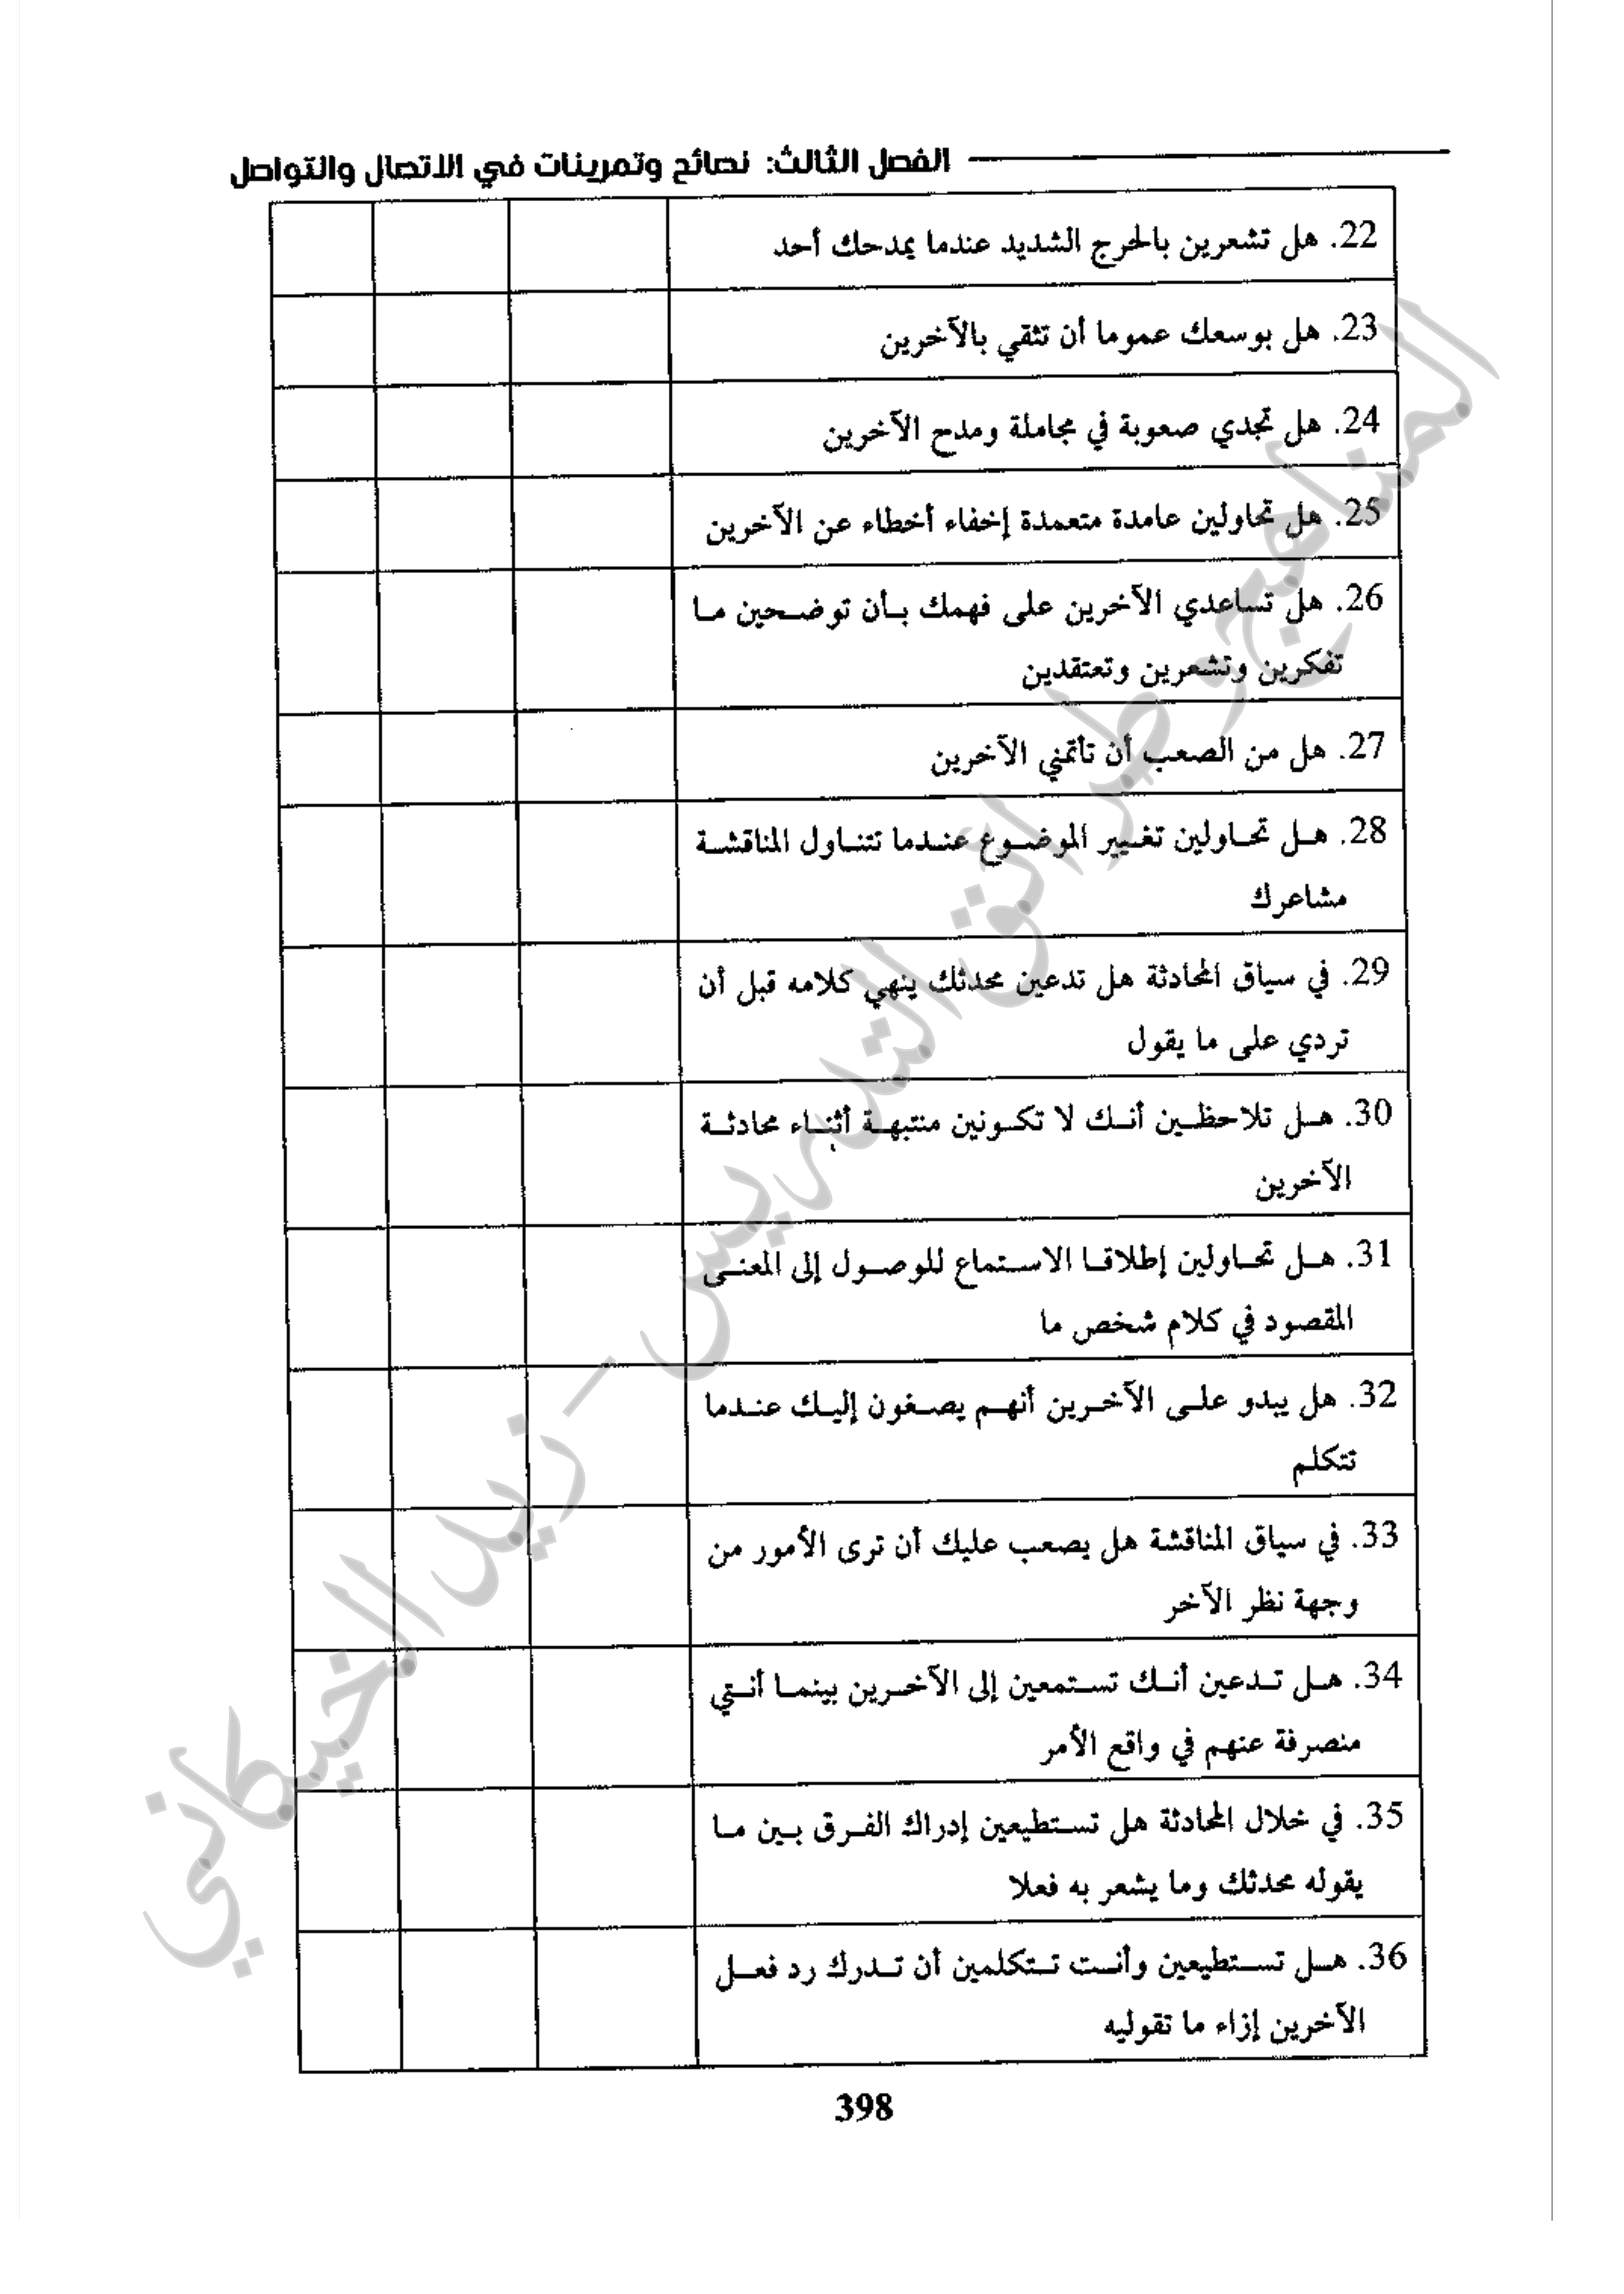 الفصل الثالث: نصائح وتمرينات في الاتصال والتواصل
22. هل تشعرين بالحرج الشديد عندما يمدحك أحد
23. هل بوسعك عموما أن تثقي بالآخرين
24. هل تجدي صعوبة في مجاملة ومدح الآخرين
25. هل تحاولين عامدة متعمدة إخفاء أخطاء عن الآخرين
26. هل تساعدي الآخرين على فهمك بأن توضحين ما
تفكرين وتشعرين وتعتقدين
27. هل من الصعب أن تأتمني الآخرين
28. هل تحاولين تغيير الموضوع عندما تتناول المناقشة
مشاعرك
29. في سياق المحادثة هل تدعين محدثك ينهي كلامه قبل أن
تردي على ما يقول
30. هل تلاحظين أنك لا تكونين منتبهة أثناء محادثة
الآخرين
31. هل تحاولين إطلاقا الاستماع للوصول إلى المعنى
المقصود في كلام شخص ما
32. هل يبدو على الآخرين أنهم يصغون إليك عندما
تتكلم
33. في سياق المناقشة هل يصعب عليك أن ترى الأمور من
وجهة نظر الآخر
34. هل تدعين أنك تستمعين إلى الآخرين بينما أنتي
منصرفة عنهم في واقع الأمر
35. في خلال المحادثة هل تستطيعين إدراك الفرق بين ما
يقوله محدثك وما يشعر به فعلا
36. هل تستطيعين وأنت تتكلمين أن تدرك رد فعل
الآخرين إزاء ما تقوليه
398
المناهج وطرائق التدريس - زيد الخيكاني